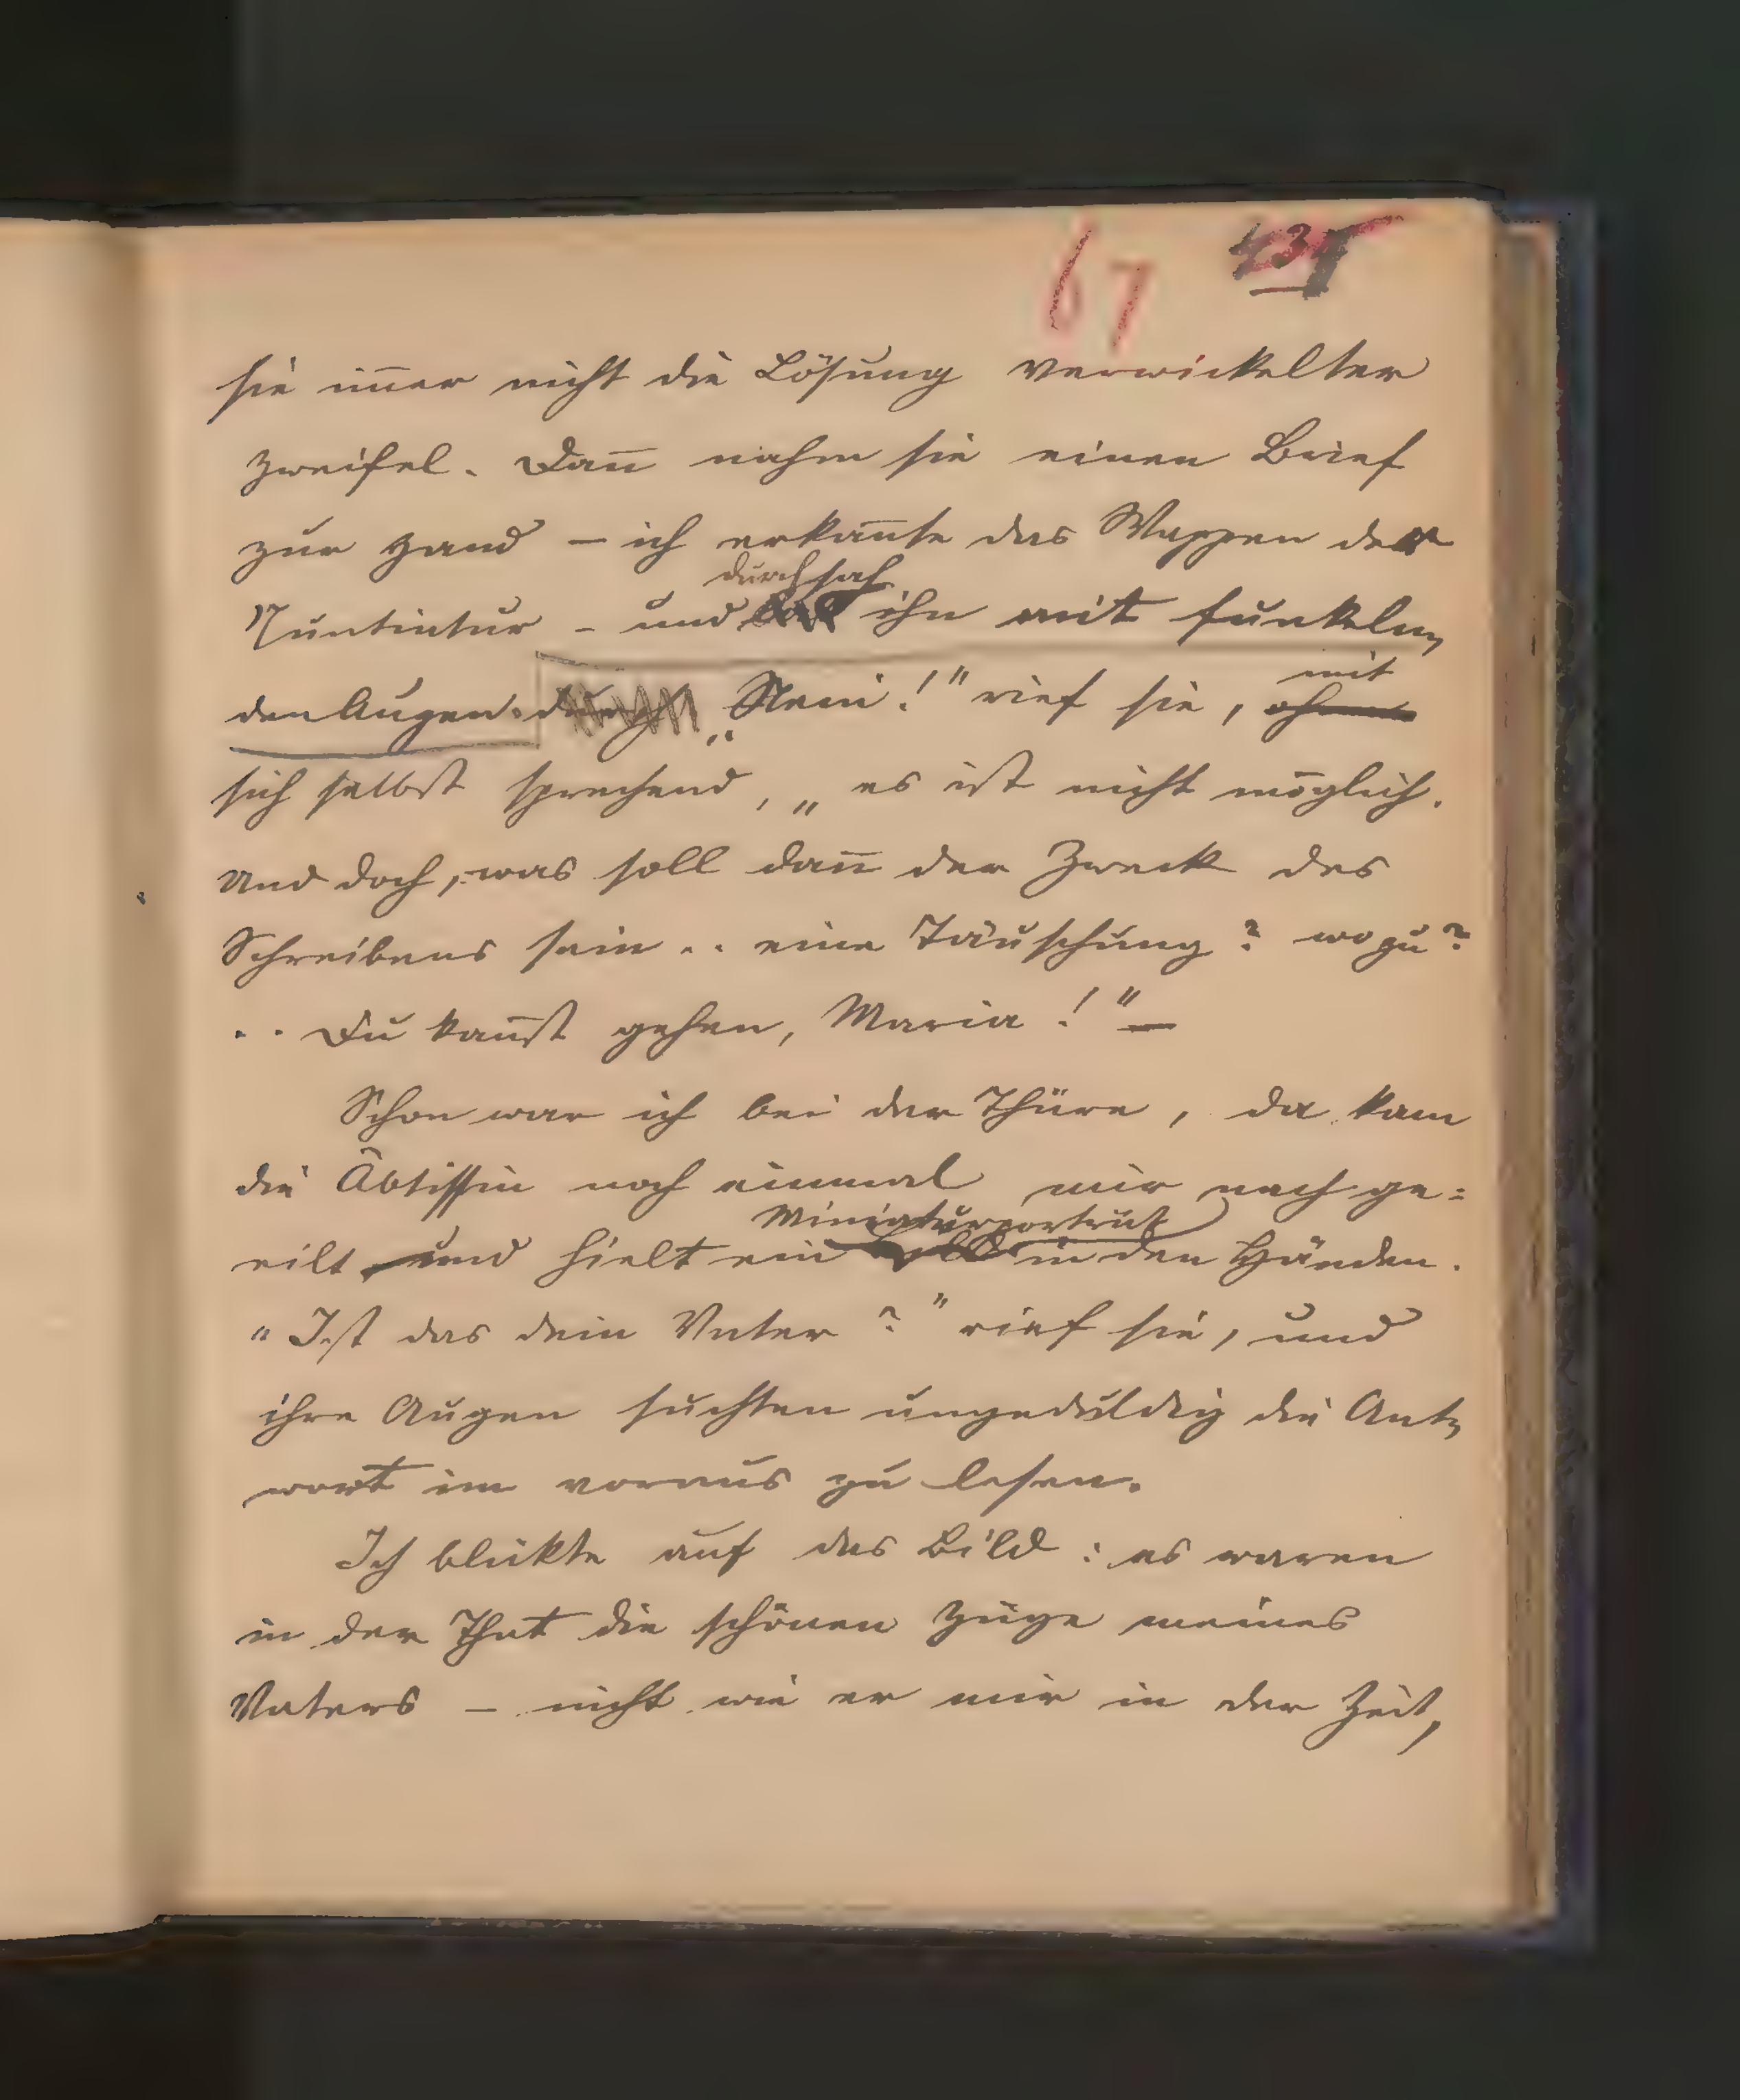 67 431
sie im̅er nicht die Lösung verwickelter
Zweifel. Dan̅ nahm sie einen Brief
zur Hand – ich erkan̅te das Wappen der
durchsah
Nuntiatur – und las ihn mit funkeln,
den Augen. durch „Nein!" rief sie, mit
ohne
sich selbst sprechend, „es ist nicht möglich.
Und doch, was soll dan̅ der Zweck des
Schreibens sein .. eine Täuschung? wozu?
.. Du kan̅st gehen, Maria!" –
Schon war ich bei der Thüre, da kam
die Äbtissin noch einmal mir nach ge=
Miniaturportrait
eilt und hielt ein Bild in den Händen.
„Ist das dein Vater?" rief sie, und
ihre Augen suchten ungeduldig die Ant,
wort im voraus zu lesen.
Ich blickte auf das Bild: es waren
in der That die schönen Züge meines
Vaters – nicht wie er mir in der Zeit,